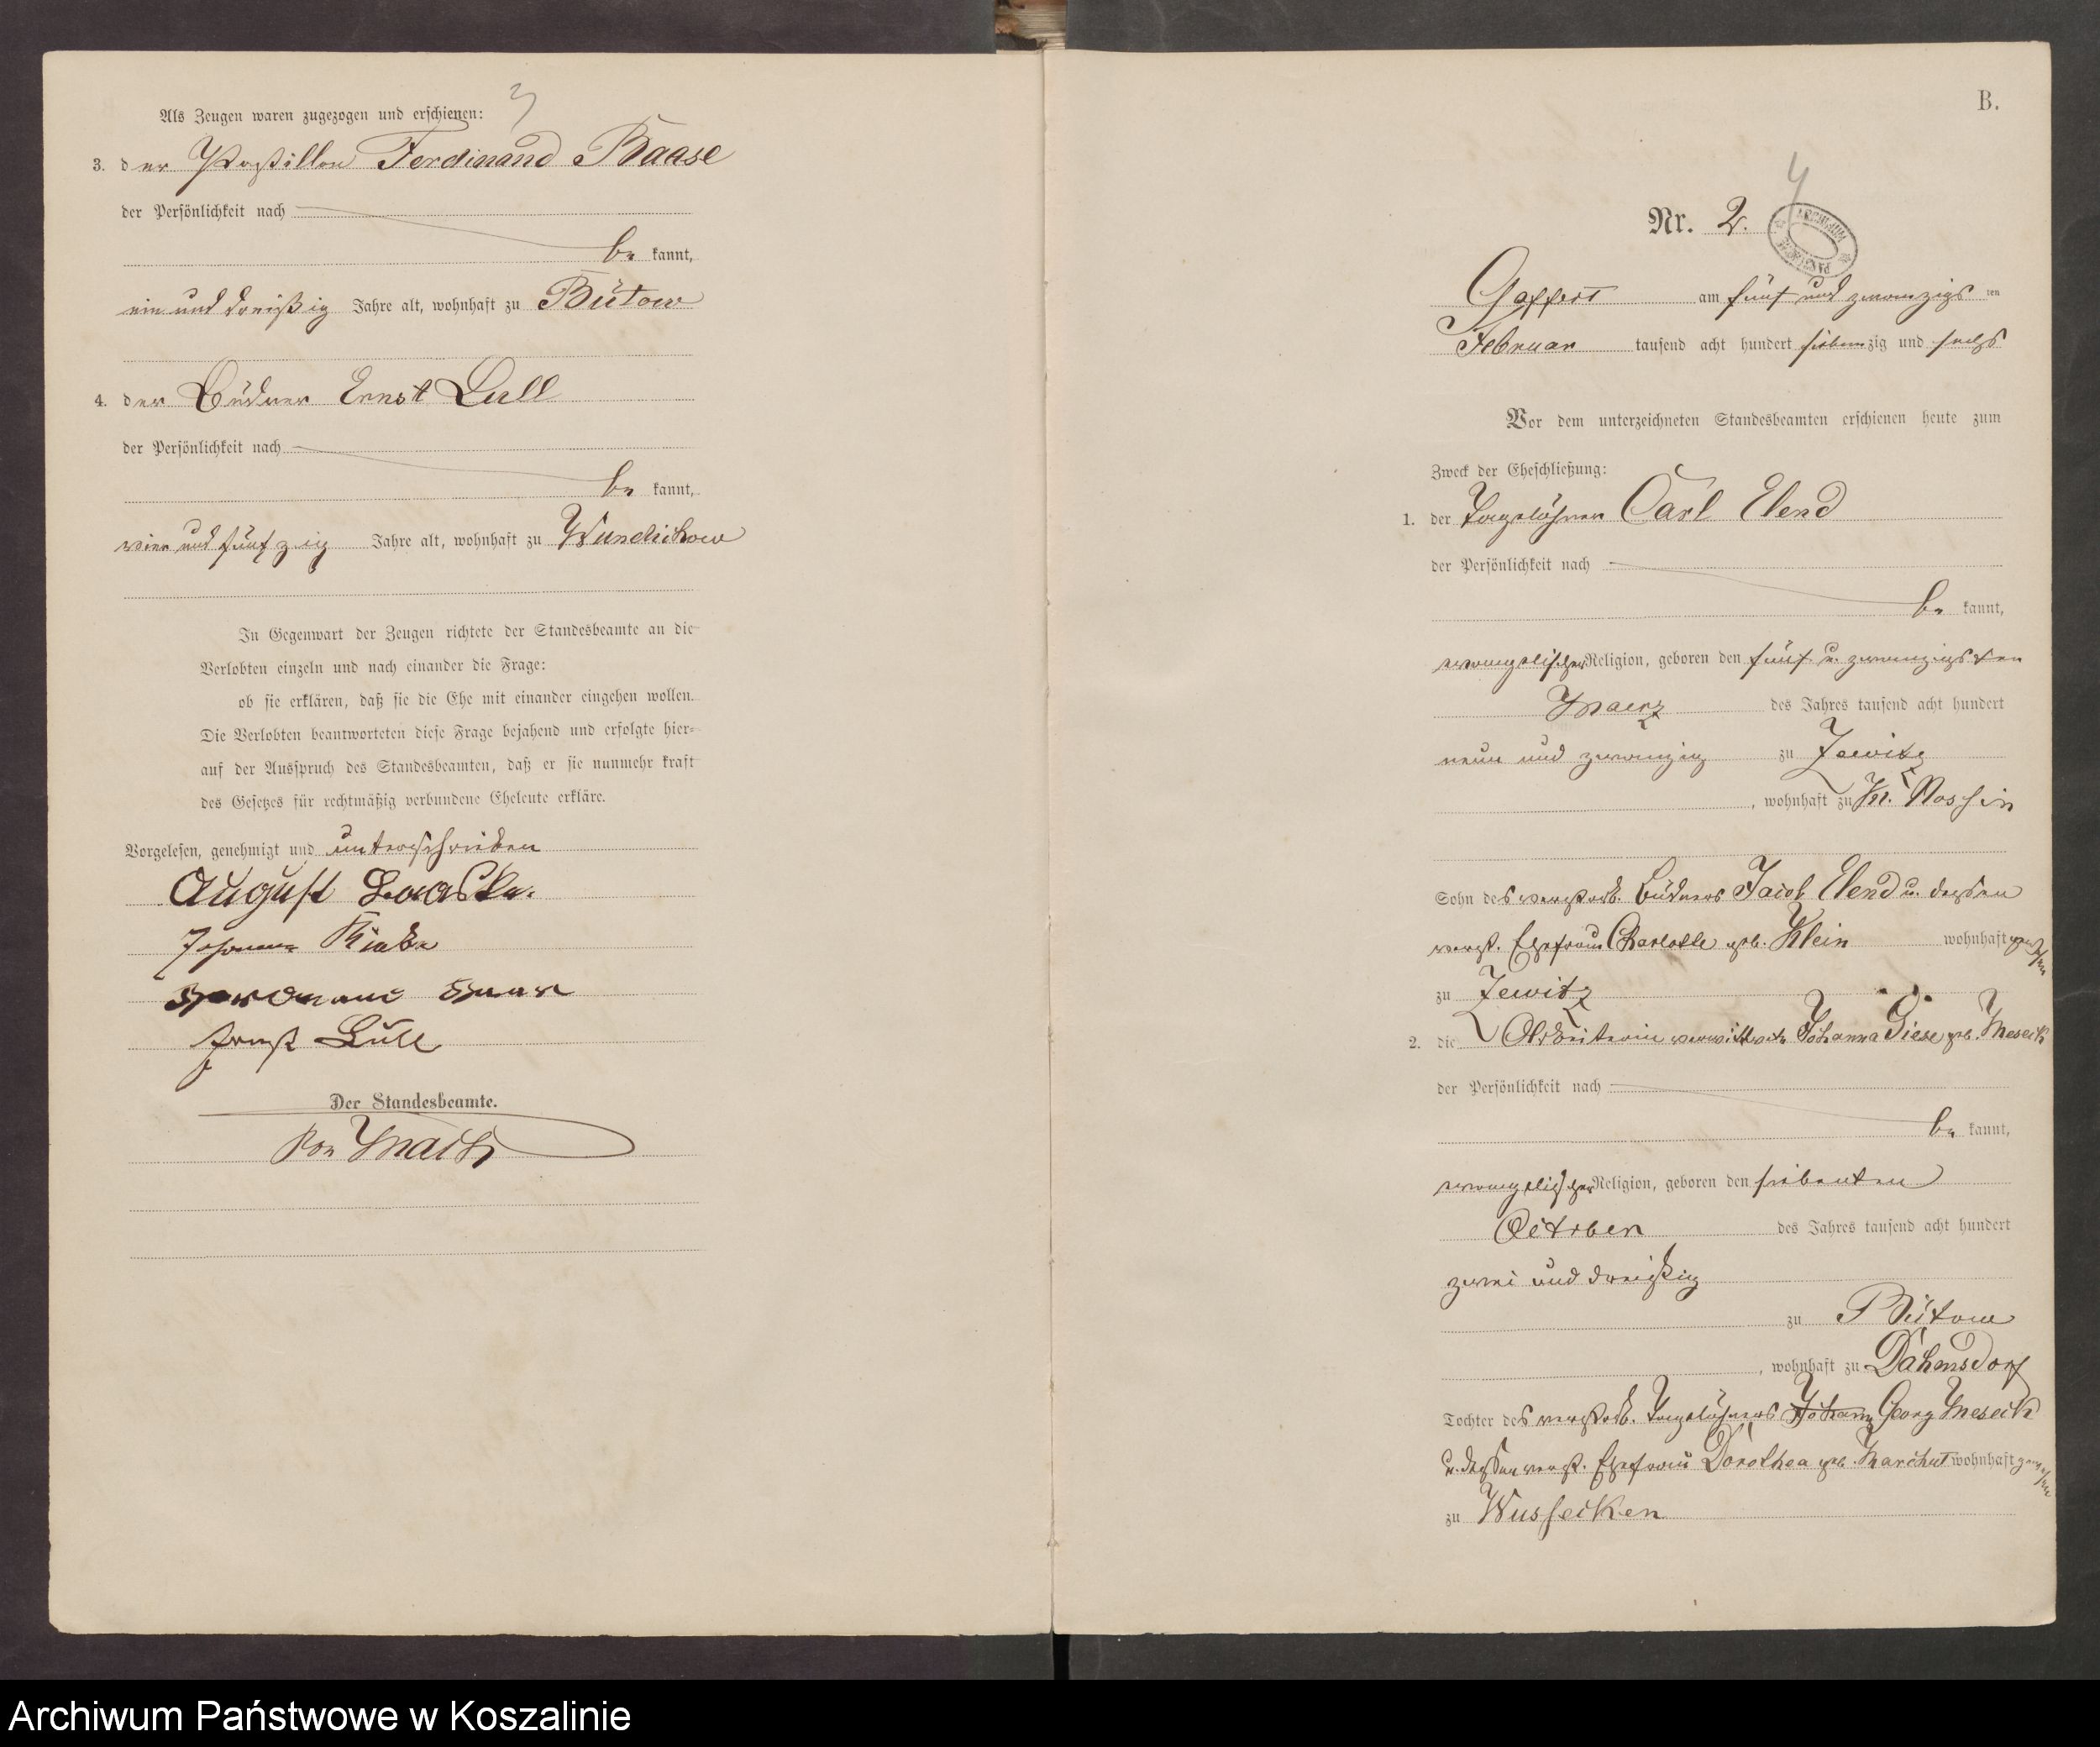 Als Zeugen waren zugezogen und erschienen:
3
3. der Postillon Ferdinand Baase
der Persönlichkeit nach
be kannt,
ein und dreißig Jahre alt, wohnhaft zu Bütow
4. der Büdner Ernst Lüll
der Persönlichkeit nach
be kannt,
vier und fünfzig Jahre alt, wohnhaft zu Wundichow
In Gegenwart der Zeugen richtete der Standesbeamte an die
Verlobten einzeln und nach einander die Frage:
ob sie erklären, daß sie die Ehe mit einander eingehen wollen.
Die Verlobten beantworteten diese Frage bejahend und erfolgte hier-
auf der Ausspruch des Standesbeamten, daß er sie nunmehr kraft
des Gesetzes für rechtmäßig verbundene Eheleute erkläre.
Vorgelesen, genehmigt und unterschrieben
August
Johanna
Ernst Lüll
Der Standesbeamte.
von
B.
4
Nr. 2.
Gaffert am fünf und zwanzigs ten
Februar tausend acht hundert siebenzig und sechs
Vor dem unterzeichneten Standesbeamten erschienen heute zum
Zweck der Eheschließung:
1. der Tagelöhner Carl Elend
der Persönlichkeit nach
be kannt,
evangelischer Religion, geboren den fünf u. zwanzigsten
Maerz des Jahres tausend acht hundert
neun und zwanzig zu Zewitz
, wohnhaft zu Kl. Nossin
Sohn des verstorb. Büdners Jacob Elend u. dessen
verst. Ehefrau Charlotte geb. Klein wohnhaft gewesen
zu Zewitz
2. die Arbeiterin verwittwete Johanna Giese geb. Meseck
der Persönlichkeit nach
be kannt,
evangelischer Religion, geboren den siebenten
October des Jahres tausend acht hundert
zwei und dreißig
zu Bütow
, wohnhaft zu Dahmsdorf
Tochter des verstorb. Tagelöhners Johann Georg Meseck
u. dessen verst. Ehefrau Dorothea geb. Marchut wohnhaft gewesen
zu Wusseken
Archiwum Państwowe w Koszalinie